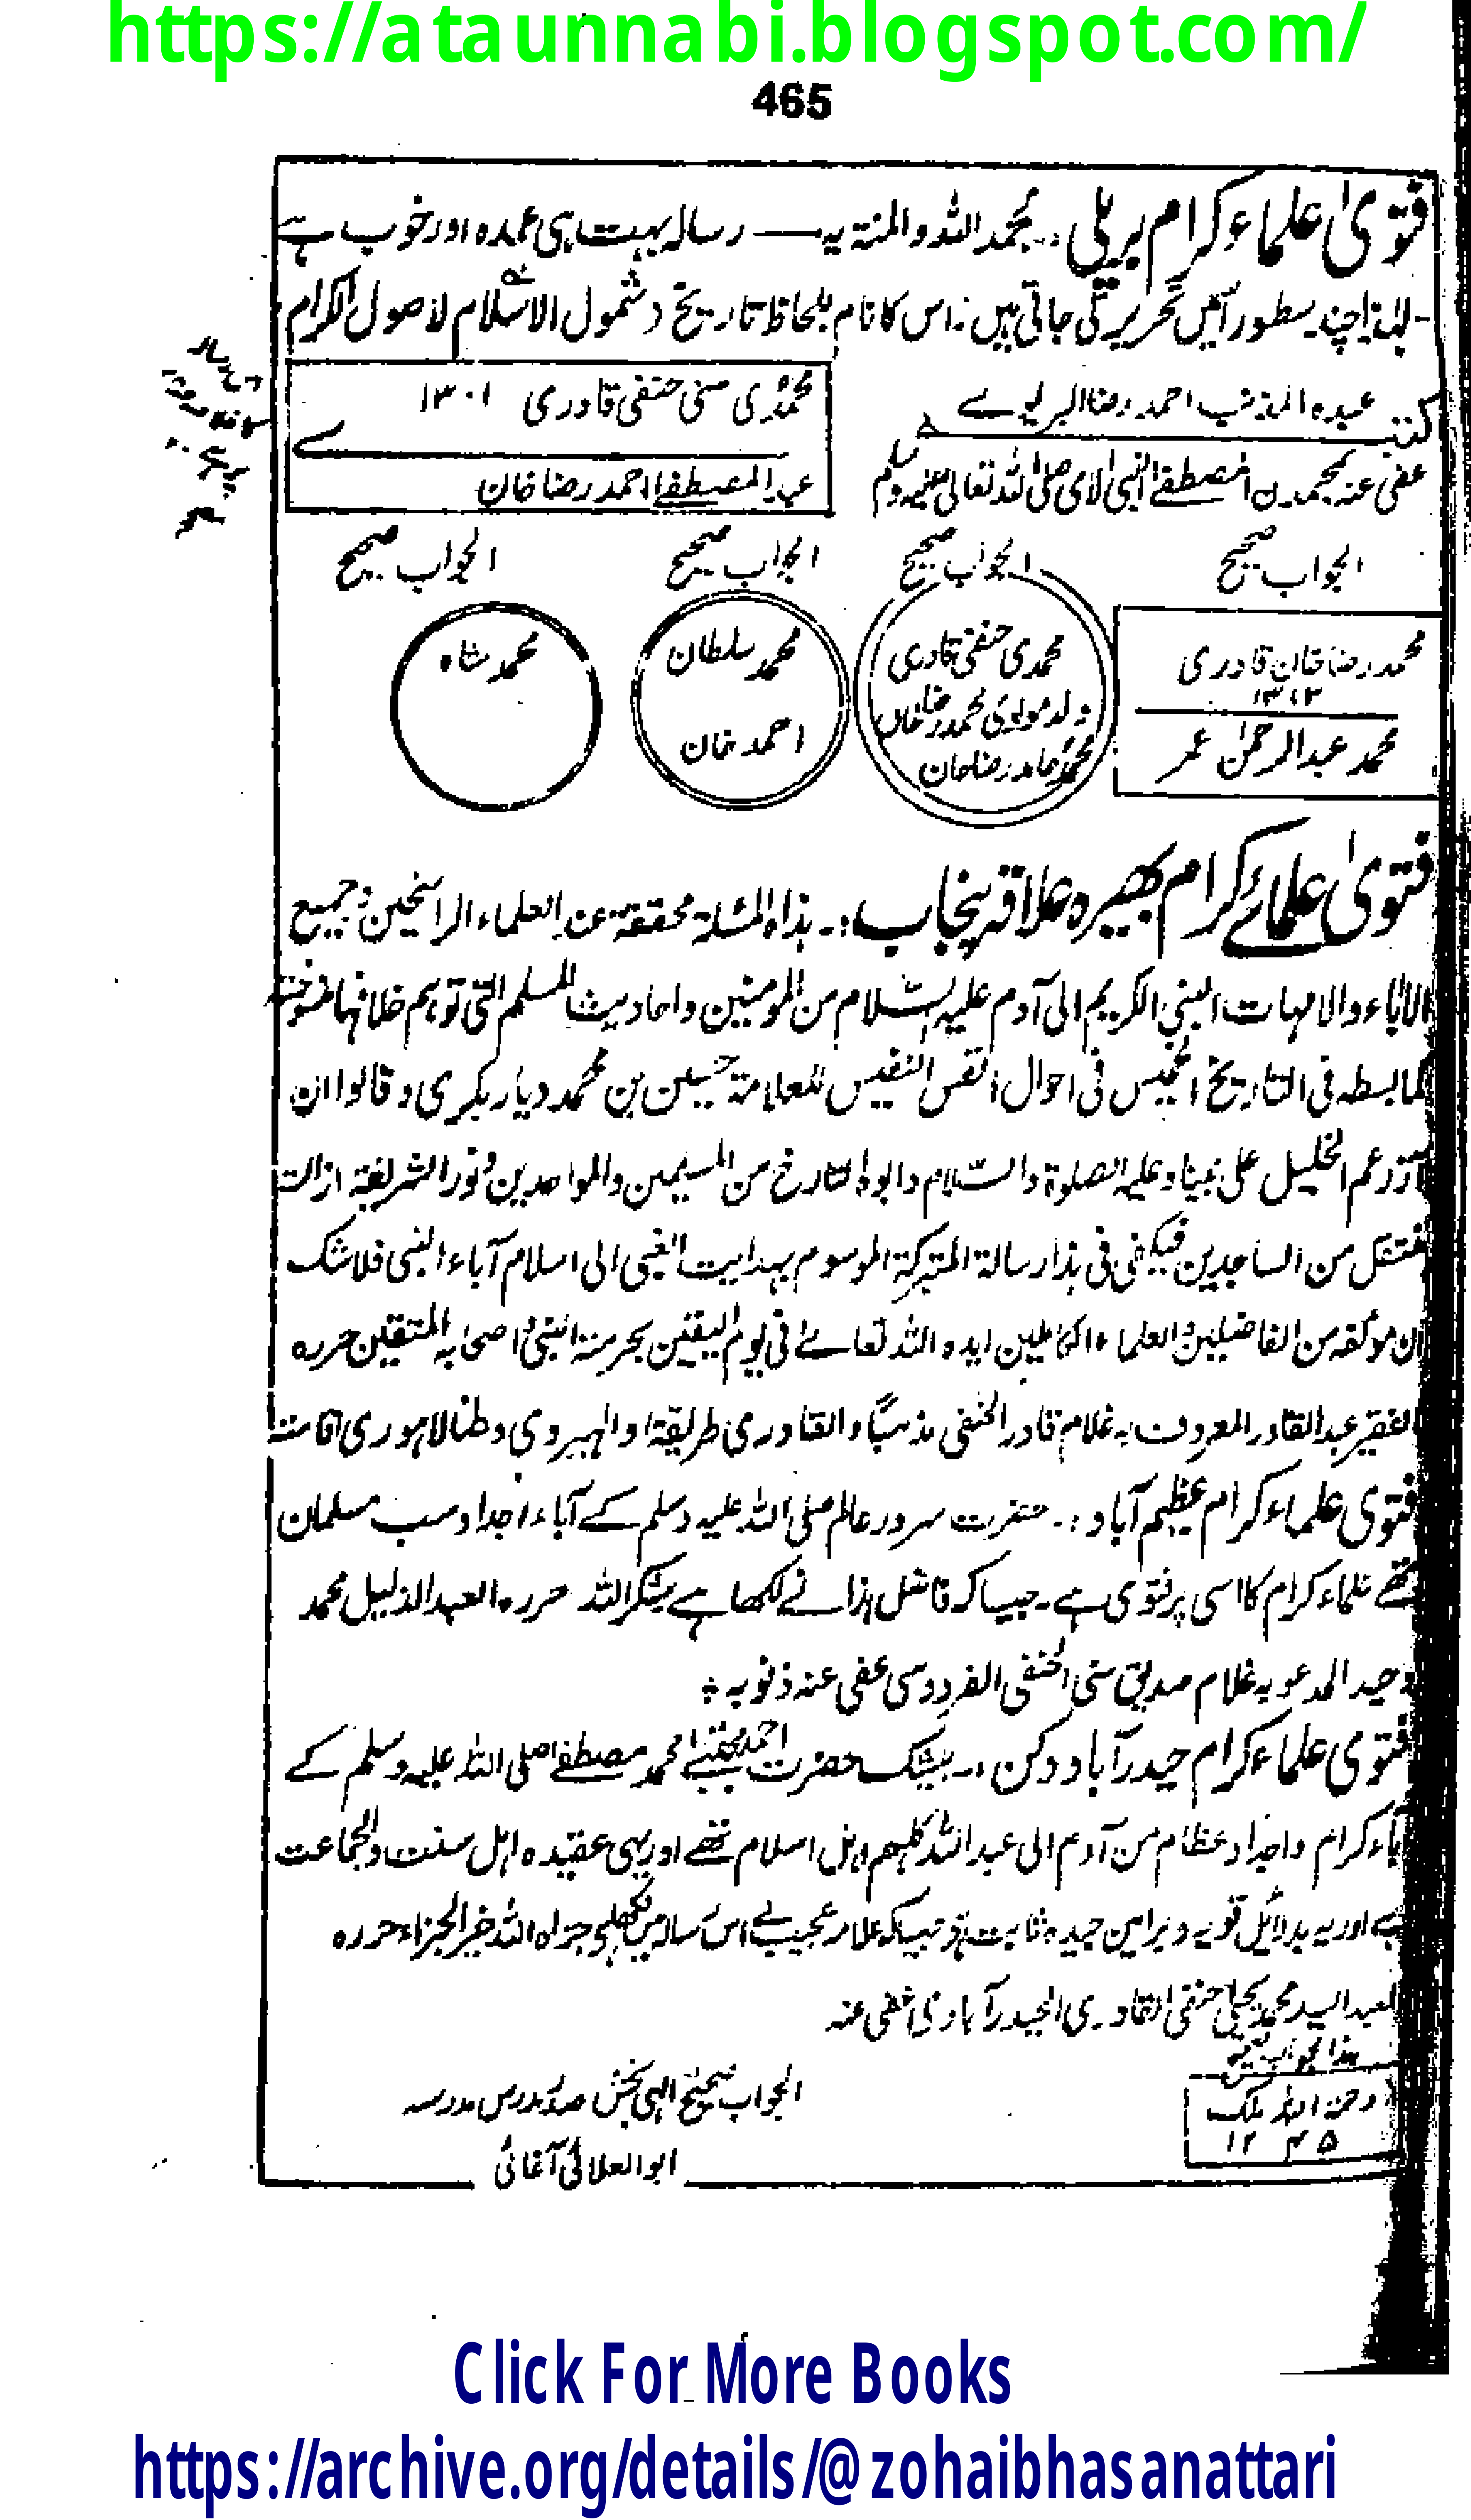 https://ataunnabi.blogspot.com/
465
فتویٰ علماء کرام بریلی :۔ بحمد اللہ والمنۃ یہ رسالہ بہت ہی عمدہ اور خوب ہے
۔ لہٰذا چند سطور اسمیں تحریر کی جاتی ہیں ۔ اس کا نام بلحاظ تاریخ شمول الاسلام لاصول الکرام
ہے
کتبہ عبدہ المذنب احمد رضا البریلوے
عفی عنہ بمحمدن المصطفےٰ النبی الامی صلی اللہ تعالیٰ علیہ وسلم
محمدی سنی حنفی قادری ۱۳۰۱
عبد المصطفےٰ احمد رضا خان
الجواب صحیح
الجواب صحیح
الجواب صحیح
الجواب صحیح
محمد رضا خان قادری
۱۳۱۲
محمد عبد الرحمٰن عمر
محمدی حنفی قادری
ولد مولوی محمد رضا خاں
محمد حامد رضا خان
محمد سلطان
احمد خان
محمد شاہ
فتویٰ علمائے کرام بھیرہ علاقہ پنجاب :۔ ہذاہ المسئلۃ محققۃ عند العلماء الراسخین و جمیع
الاٰباء والامہات النبی الکریم الی آدم علیہ السلام من المومنین و احادیث المسلم التی توہم خلافہا
کما بسطہ فی التاریخ الخمیس فی احوال انفس النفیس للعلامۃ حسین بن محمد دیار بکری و قالوا ان
آزر عم الخلیل علی نبینا و علیہ الصلوۃ والسلام و ابوہ التارخ من المسلمین والمواحدین
من الساجدین فیکفی فی ہذا رسالۃ المتبرکۃ الموسوم بہدایت الغبی الی اسلام آباء النبی فلاشک
ان مؤلفہ من الفاضلین والعلماء الکاملین ایدہ اللہ تعالےٰ فی یوم الیقین بحرمۃ النبی و اصحابہ المتقین حررہ
الفقیر عبد القادر المعروف بہ غلام قادر الحنفی مذہباً والقادری طریقۃً والبہیروی وطنا لاہوری اقامتہ
فتوی علماء کرام عظیم آباد :۔ حضرت سرور عالم صلی اللہ علیہ وسلم کے آباء اجداد سب مسلمان
تھے علماء کرام کا اسی پر فتوی ہے ۔ جیسا کہ فاضل ہذا نے لکھا ہے یشکر اللہ حررہ العبد الذلیل محمد
وحید المدعو بہ غلام صدیق سنی الحنفی الفردوسی عفی عنہ ذنوبہ
فتوی علماء کرام حیدرآباد دکن :۔ بیشک حضرت احمد مجتبےٰ محمد مصطفےٰ صلی اللہ علیہ وسلم کے
آباء کرام واجداد عظام من آدم الی عبد اللہ کلہم اہل اسلام تھے اور یہی عقیدہ اہل سنت والجماعت
ہے اور یہ بدلائل قویہ و براہین جیدہ ثابت جیسا کہ علامہ مجیب نے اس رسالہ میں جزاہ اللہ خیر الجزاء حررہ
العبد السید محمد یحییٰ حنفی القادری الحیدرآبادی عفی عنہ
ہذا الجواب صحیح
رحمۃ اللہ ملک
۱۲۴۵
الجواب صحیح الٰہی بخش صدر مدرس مدرسہ
ابو العلائی آغائی
Click For More Books
https://archive.org/details/@zohaibhasanattari